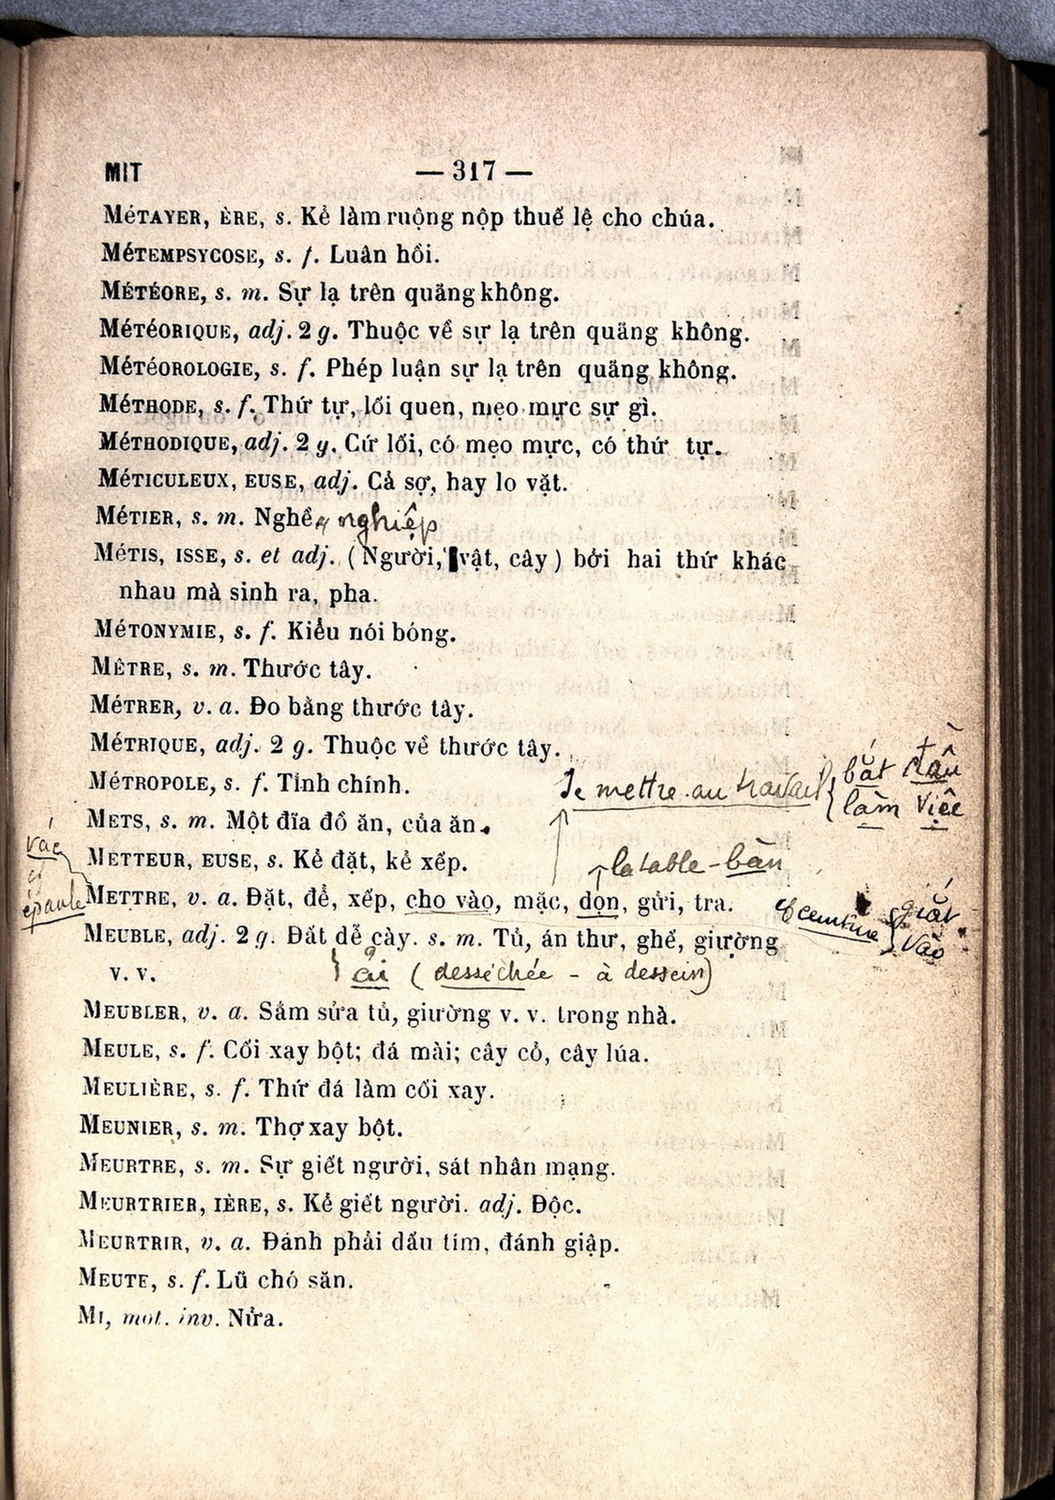 MIT — 317 —
MÉTAYER, ÈRE, s. Kẻ làm ruộng nộp thuế lệ cho chúa.
MÉTEMPSYCOSE, s. f. Luân hồi.
MÉTÉORE, s. m. Sự lạ trên quãng không.
MÉTÉORIQUE, adj. 2 g. Thuộc về sự lạ trên quãng không.
MÉTÉOROLOGIE, s. f. Phép luận sự lạ trên quãng không.
MÉTHODE, s. f. Thứ tự, lối quen, mẹo mực sự gì.
MÉTHODIQUE, adj. 2 g. Cứ lối, có mẹo mực, có thứ tự.
MÉTICULEUX, EUSE, adj. Cả sợ, hay lo vặt.
MÉTIER, s. m. Nghề, nghiệp
MÉTIS, ISSE, s. et adj. (Người, vật, cây) bởi hai thứ khác
nhau mà sinh ra, pha.
MÉTONYMIE, s. f. Kiểu nói bóng.
MÈTRE, s. m. Thước tây.
MÉTRER, v. a. Đo bằng thước tây.
MÉTRIQUE, adj. 2 g. Thuộc về thước tây.
bắt đầu
MÉTROPOLE, s. f. Tỉnh chính. Se mettre au travail { làm việc
METS, s. m. Một đĩa đồ ăn, của ăn.
vác
METTEUR, EUSE, s. Kẻ đặt, kẻ xếp. la table - bàn
épaule METTRE, v. a. Đặt, để, xếp, cho vào, mặc, dọn, gửi, tra. ceinture { giắt
vào
MEUBLE, adj. 2 g. Đất dễ cày. s. m. Tủ, án thư, ghế, giường
v. v. ải (desséchée - à dessein)
MEUBLER, v. a. Sắm sửa tủ, giường v. v. trong nhà.
MEULE, s. f. Cối xay bột; đá mài; cây cỏ, cây lúa.
MEULIÈRE, s. f. Thứ đá làm cối xay.
MEUNIER, s. m. Thợ xay bột.
MEURTRE, s. m. Sự giết người, sát nhân mạng.
MEURTRIER, IÈRE, s. Kẻ giết người. adj. Độc.
MEURTRIR, v. a. Đánh phải dấu tím, đánh giập.
MEUTE, s. f. Lũ chó săn.
MI, mot. inv. Nửa.